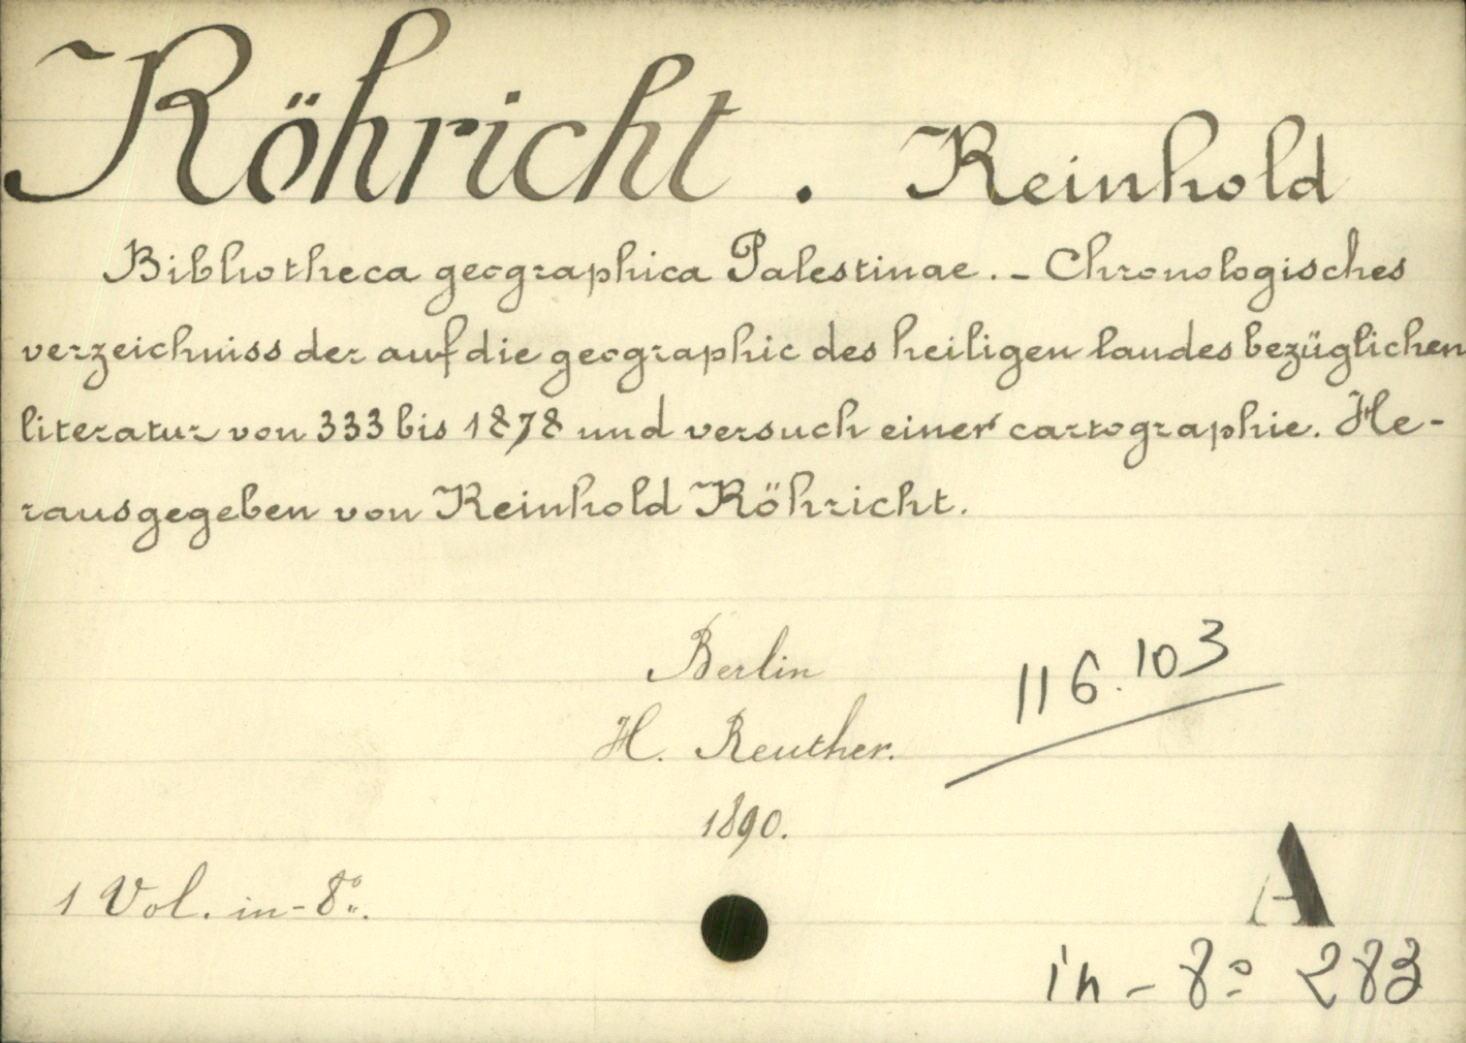 Röhricht. Reinhold
Bibliotheca geographica Palestinae. - Chronologisches
verzeichniss der auf die geographie des heiligen landes bezüglichen
literatur von 333 bis 1878 und versuch einer cartographie. He-
rausgegeben von Reinhold Röhricht.
Berlin
116.103
H. Reuther.
1890.
1 Vol. in-8º.
A
in-8º 283